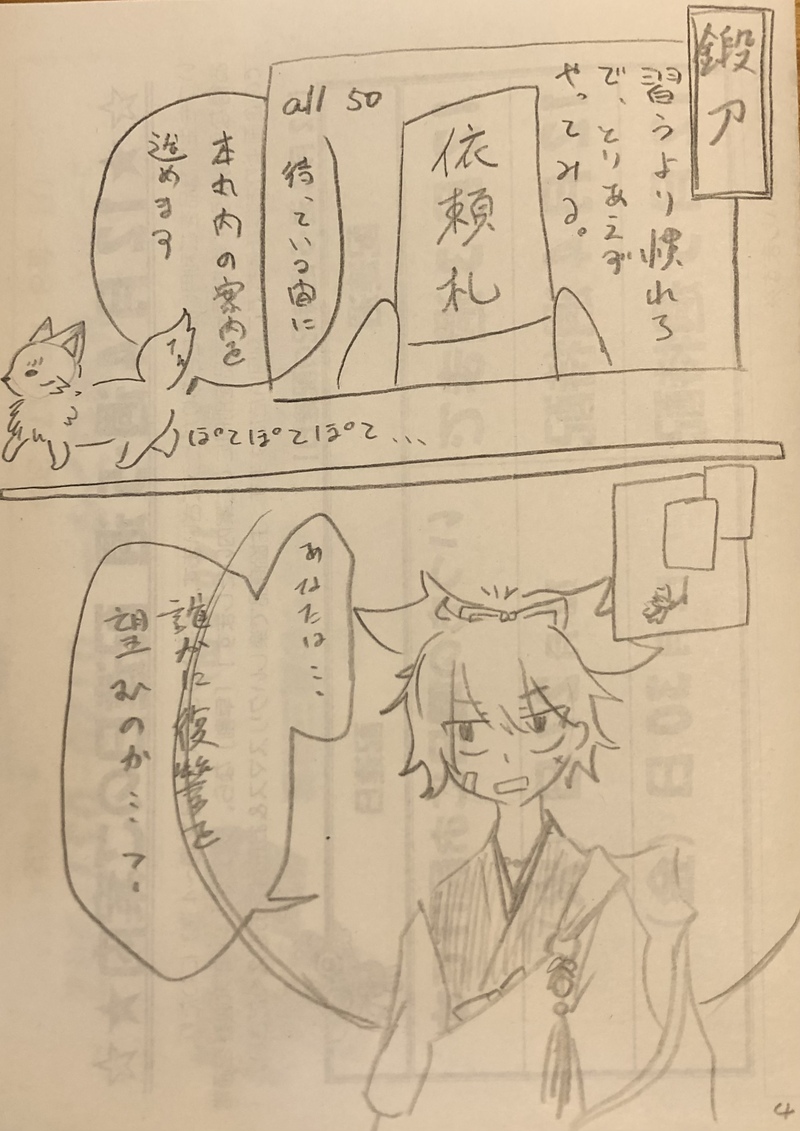 鍛刀
習うより慣れろ
で、とりあえず
やってみる。
依頼札
all 50
待っている間に
本丸内の案内を
進めます
てく
ぽてぽてぽて…
あなたは…
誰かに復讐を
望むのか…?
4